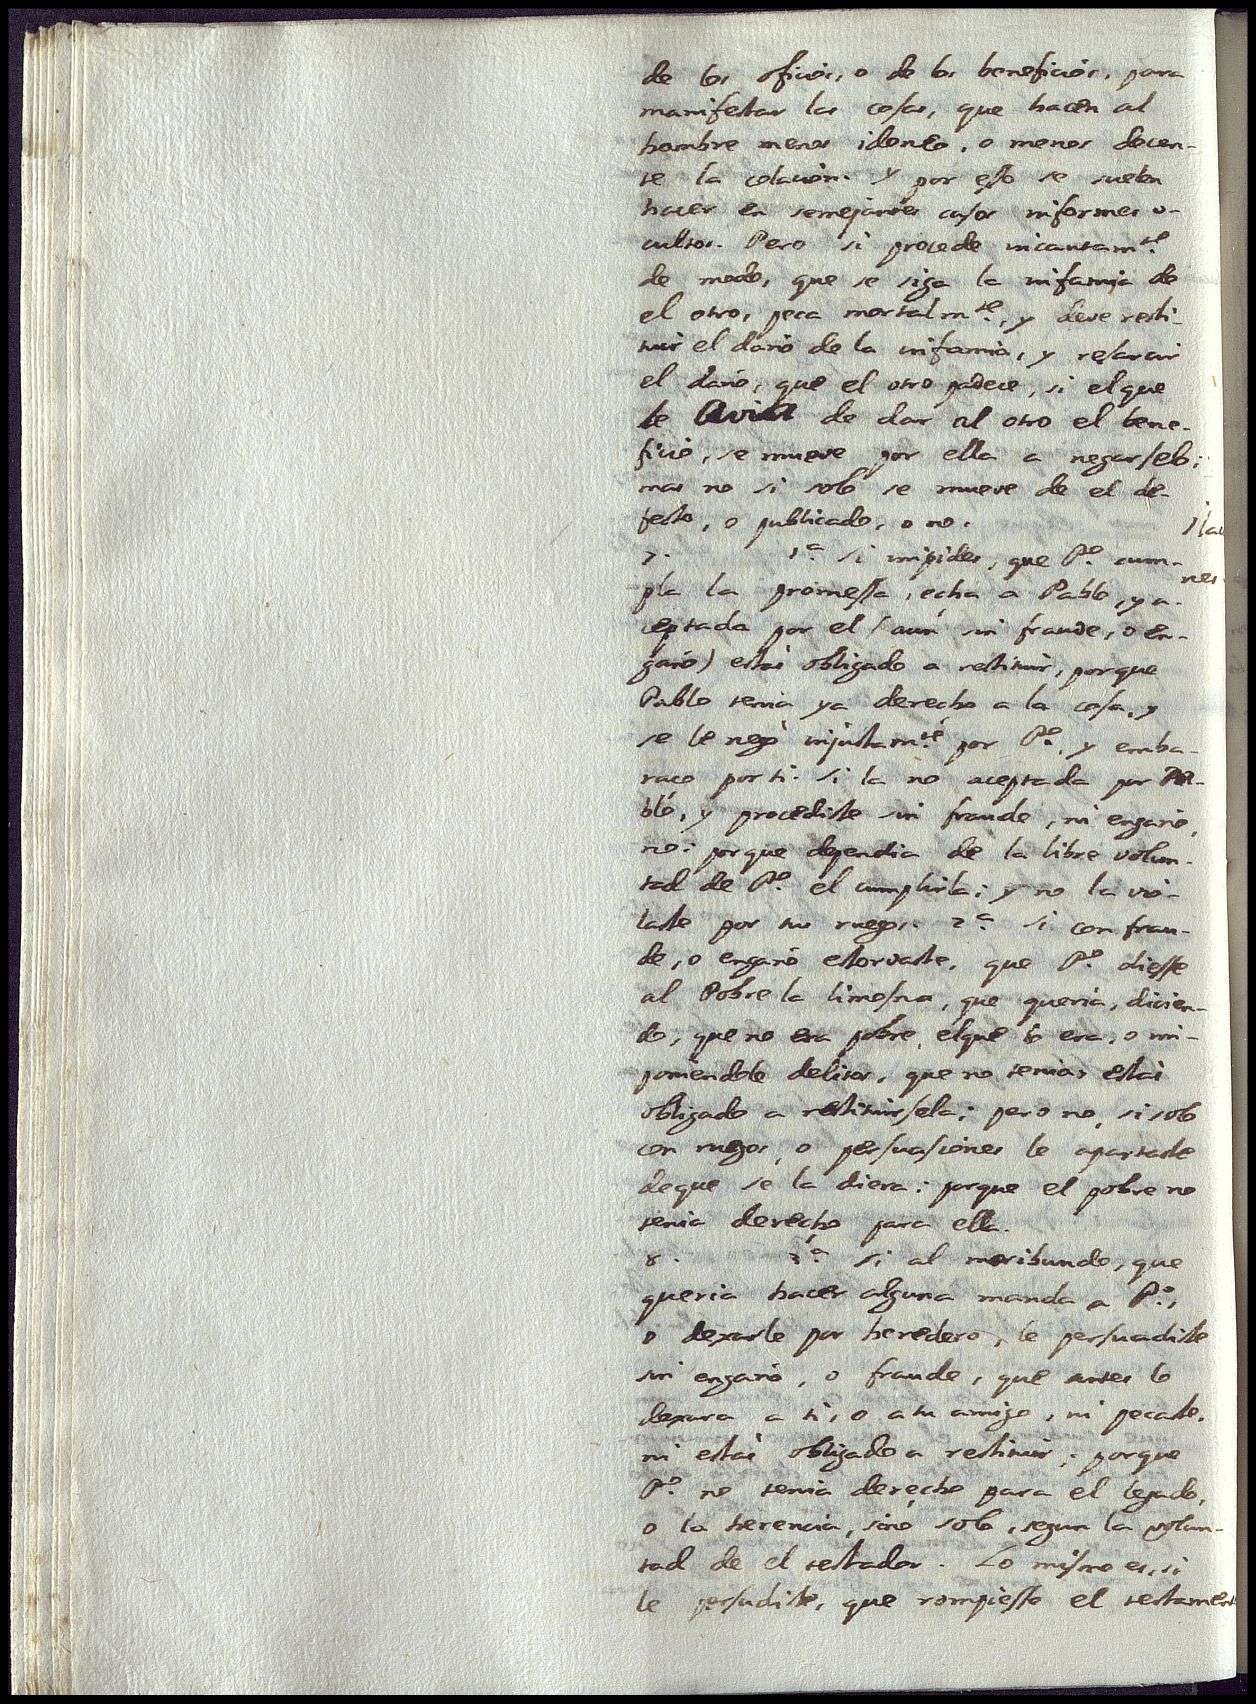 de los oficios, o de los beneficios, para
manifestar las cosas, que hacen al
hombre menos idoneo, o menos decen-
te la colacion. Y por esso se suelen
hacer en semejantes casos informes o-
cultos. Pero si procede incautam.te
de modo, que se siga la infamia de
el otro, peca mortalm.te, y deve resti-
tuir el daño de la infamia, y resarcir
el daño, que el otro padece, si el que
le de dar al otro el bene-
ficio, se mueve por ella a negarselo;
mas no si solo se mueve de el de-
fecto, o publicado, o no.
7. 1.a si impides, que P.o cum-
pla la promessa, echa a Pablo, y a-
ceptada por el (aun sin fraude, o en-
gaño) estàs obligado a restituir, porque
Pablo tenia ya derecho a la cosa, y
se le negò injustam.te por P.o, y emba-
razo por ti: si la no aceptada por Pa-
blo, y procediste sin fraude, ni engaño,
no: porque dependia de la libre volun-
tad de P.o el cumplirla; y no la vio-
laste por tus ruegos. 2.a si con frau-
de, o engaño estorvaste, que P.o diesse
al Pobre la limosna, que queria, dicien-
do, que no era pobre, el que lo era, o im-
poniendole delitos, que no tenia, estàs
obligado a restituirsela; pero no, si solo
con ruegos, o persuasiones le apartaste
de que se la diera: porque el pobre no
tenia derecho para ella.
8. 3.a si al moribundo, que
queria hacer alguna manda a P.o,
o dexarle por heredero, le persuadiste
sin engaño, o fraude, que antes lo
dexara a ti, o a tu amigo, ni pecaste,
ni estàs obligado a restituir; porque
P.o no tenia derecho para el legado,
o la herencia, sinò solo, segun la volun-
tad de el testador. Lo mismo es, si
le persudiste, que rompiesse el testamen